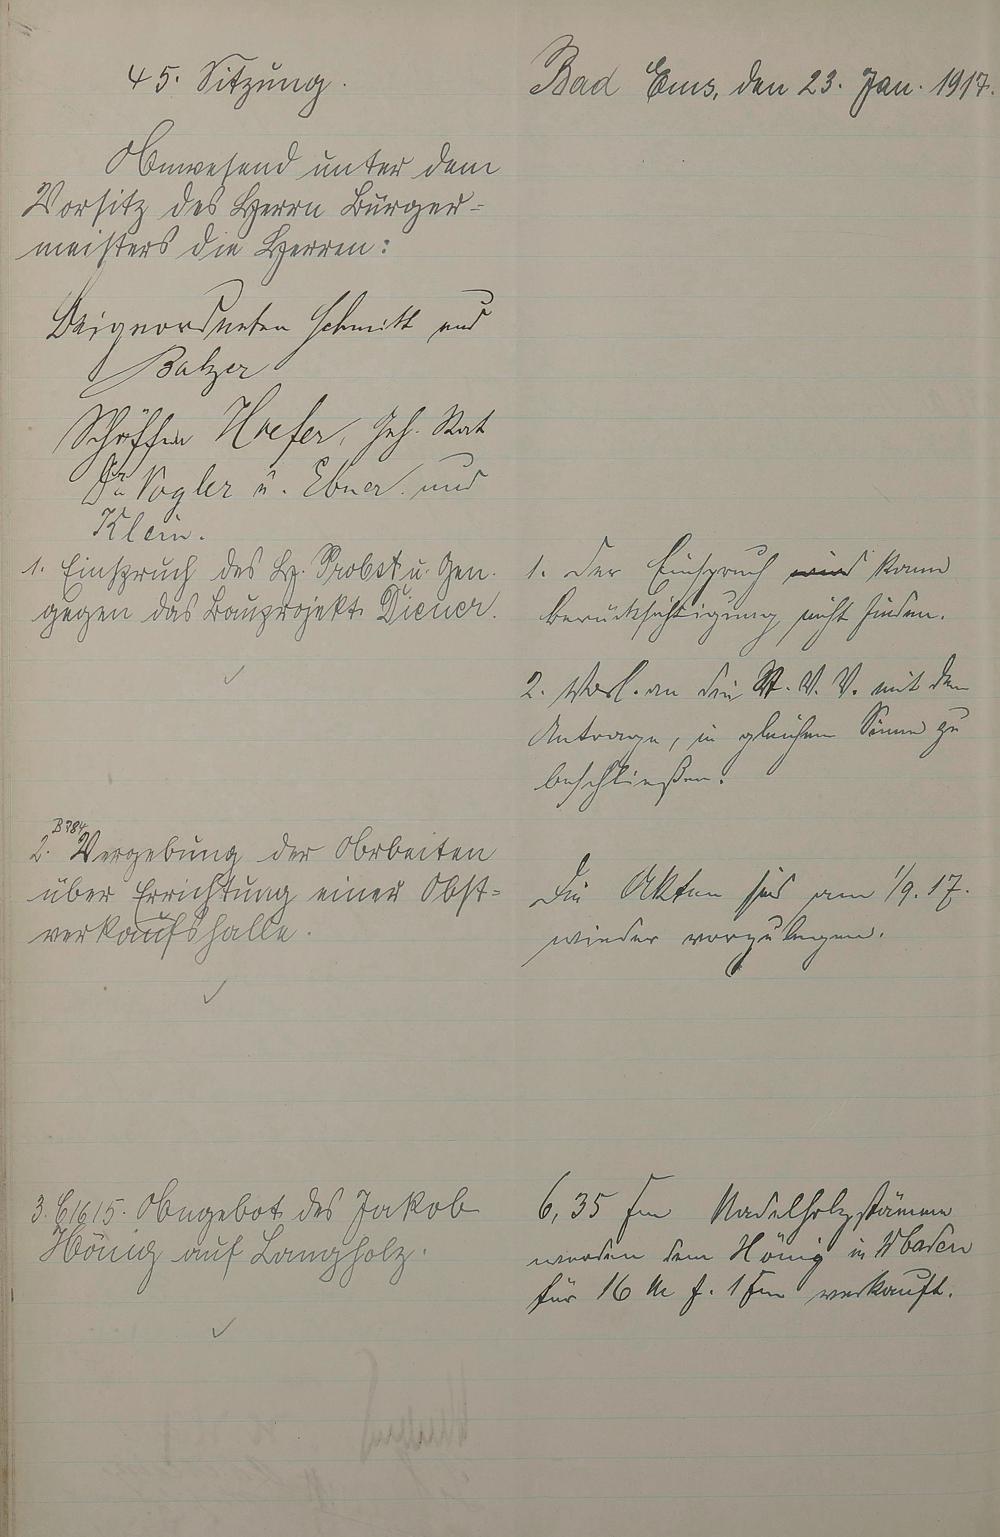 45. Sitzung.
Bad Ems, den 23. Jan. 1917.
Anwesend unter dem
Vorsitz des Herrn Bürger=
meisters die Herren:
Beigeordneten Schmitt und
Balzer
Schöffen Hoefer, Geh. Rat
Dr. Vogler u. Ebner und
Klein.
1. Einspruch des H. Probst u. Gen.
gegen das Bauprojekt Diener.
1. Der Einspruch wird kann
Berücksichtigung nicht finden.
2. Vorl. an die St. V. V. mit dem
Antrage, in gleichem Sinne zu
beschließen.
B 784
2. Vergebung der Arbeiten
über Errichtung einer Obst=
verkaufshalle.
Die Akten sind am 1/9. 17.
wieder vorzulegen.
3. C1615. Angebot des Jakob
König auf Langholz.
6,35 fm Nadelholzstämme
werden dem König in
für 16 M f. 1 fm verkauft.